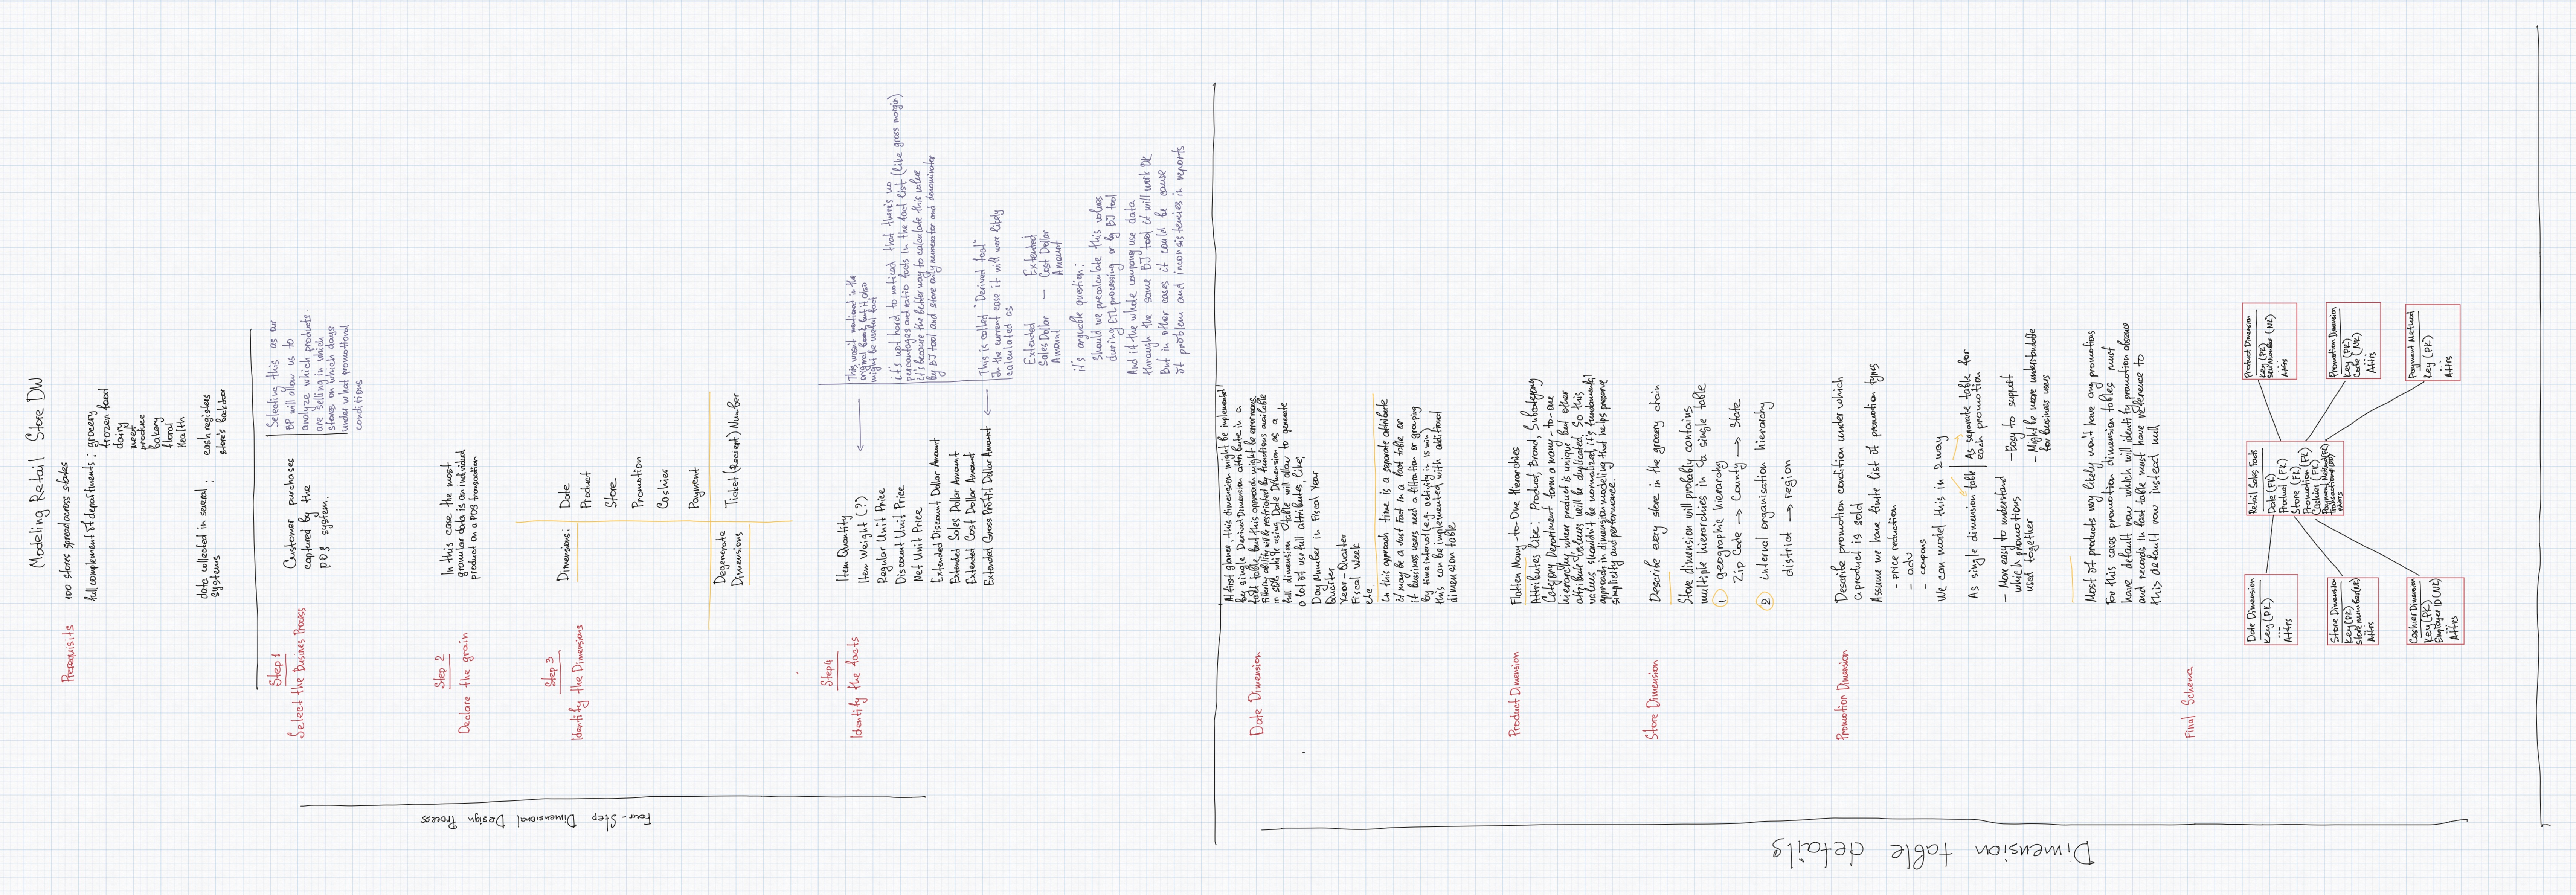 Modeling Retail Store DW
Prerequisits
100 stores spread across states
full complement of departments : grocery
frozen food
dairy
meet
produce
bakery
floral
Health
data collected in several : cash registers
systems store's backdoor
Step 1
Select the Busines Process
Customer purchases
captured by the
POS system.
Selecting this as our
BP will allow us to
analyze which products
are selling in which
stores on which days
under what promotional
conditions
Four-Step Dimensional Design Process
Step 2
Declare the grain
In this case the most
granular data is an individual
product on a POS transaction
Step 3
Identify the Dimensions
Dimensions:
Date
Product
Store
Promotion
Cashier
Payment
Degenerate
Dimensions
Ticket (Reciept) Number
Step4
Identify the facts
Item Quantity
Item Weight (?)
Regular Unit Price
Discount Unit Price
Net Unit Price
Extended Discount Dollar Amount
Extended Sales Dollar Amount
Extended Cost Dollar Amount
Extended Gross Profit Dollar Amount
This wasn't mentioned in the
original book, but it also
might be useful fact
it's not hard to noticed that there's no
percentages and ratio facts in the fact list (like gross margin)
it's because the better way to calculate this value
by BI tool and store only numerator and denominator
This is called "Derived fact"
In the current case it will were likely
calculated as
Extended
Sales Dollar
Amount
—
Extended
Cost Dollar
Amount
it's arguable question:
Should we precalculate this values
during ETL processing or by BI tool
And if the whole company use data
through the same BI tool it will work OK
But in other cases it could be cause
of problem and inconsistencies in reports
Dimension table details
Date Dimension
At first glance, this dimension might be implemented
by single Derived Dimension attribute in a
fact table, but this approach might be errornous.
Filtering ability will be restricted by functions available
in SQL while using Date Dimension, as a
full dimension table will allow to generate
a lot of usefull attributes, like:
Day Number in Fiscal Year
Quarter
Year-Quarter
Fiscal Week
etc.
In this approach time is a separate attribute
it may be a just Fact in a fact table or
if bussiness users need a filtration or grouping
by time interval (e.g. activity in 15 min)
this can be implemented with additional
dimension table
Product Dimension
Flatten Many-to-One Hierarchies
Attributes like: Product, Brand, Subcategory
Category Department form a many-to-one
hierarchy, where product is unique but other
attribute values will be duplicated. So this
values shouldn't be normalized, it's fundamental
approach in dimension modeling that helps preserve
simplicity and performance.
Store Dimension
Describe every store in the grocery chain
Store dimension will probably contains
multiple hierarchies in a single table
1 geographic hierarchy
Zip Code → County → State
2 internal organisation hierarchy
district → region
Promotion Dimension
Describe promotion condition under which
a product is sold
Assume we have finite list of promotion types
- price reduction
- adv
- coupons
We can model this in 2 way
As single dimension table
As separate table for
each promotion
- More easy to understand
which promotions
used together
- Easy to support
- Might be more understandable
for business users
Most of products very likely won't have any promotions
For this cases promotion dimension tables must
have default row which will identify promotion absence
and records in fact table must have reference to
this default row instead null
Final Schema
Date Dimension
Key (PK)
...
Attrs
Retail Sales Facts
Date (FK)
Product (FK)
Store (FK)
Promotion (FK)
Cashier (FK)
Payment Method (FK)
Transaction# (DD)
Facts
Product Dimension
Key (PK)
SKU Number (NK)
...
Attrs
Store Dimension
Key (PK)
Store number (NK)
...
Attrs
Promotion Dimension
Key (PK)
Code (NK)
...
Attrs
Cashier Dimension
Key (PK)
Employee ID (NK)
...
Attrs
Payment Method
Key (PK)
...
Attrs